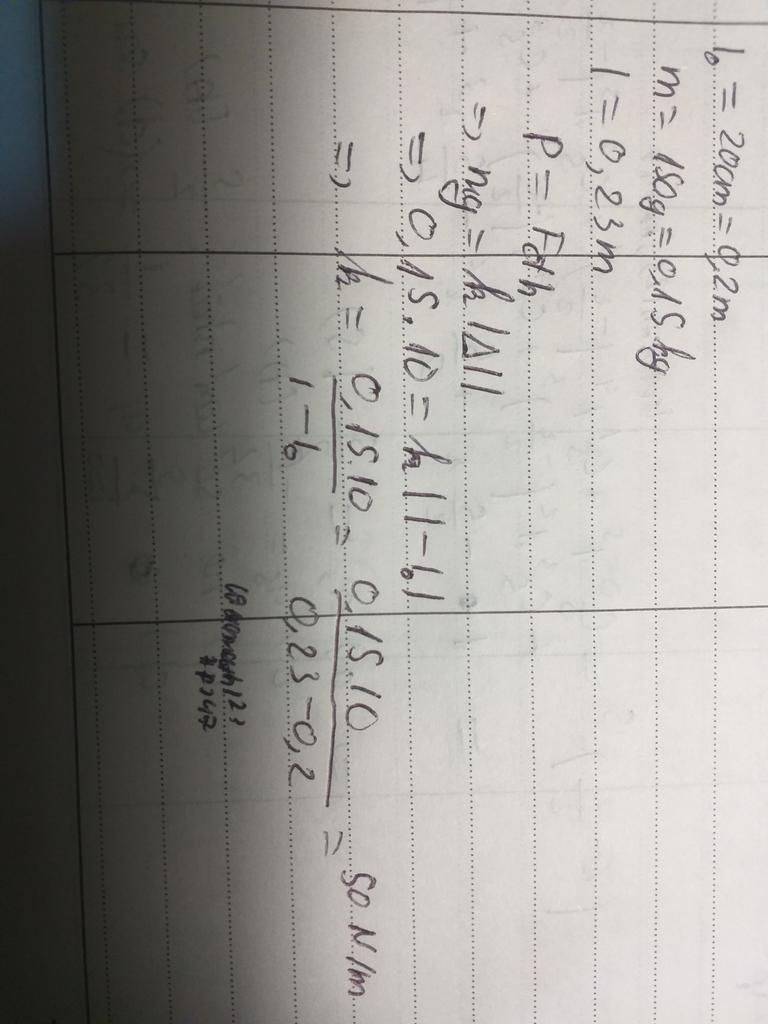 l₀ = 20cm = 0,2m
m = 150g = 0,15 kg
l = 0,23m
P = Fđh
=> mg = k |Δl|
=> 0,15.10 = k |l - l₀|
=> k = 0,15.10 / l - l₀ = 0,15.10 / 0,23 - 0,2 = 50 N/m